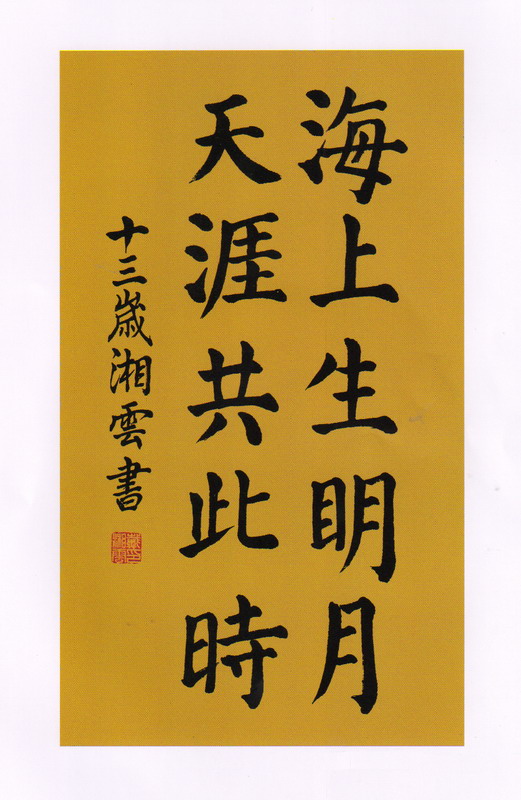 海上生明月
天涯共此時
十三歲湘雲書